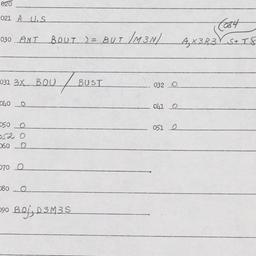 020
021 A U.S
(084
030 ANT BOUT )= BUT /M3N/ A,X3R3 S+T8
031 3X BOU / BUST 032 0
040 0 041 0
050 0 051 0
052 0
060 0
070 0
080 0
090 BOJ, D3M3S